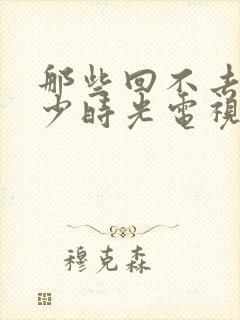 那些回不去
少時光電視
穆克森